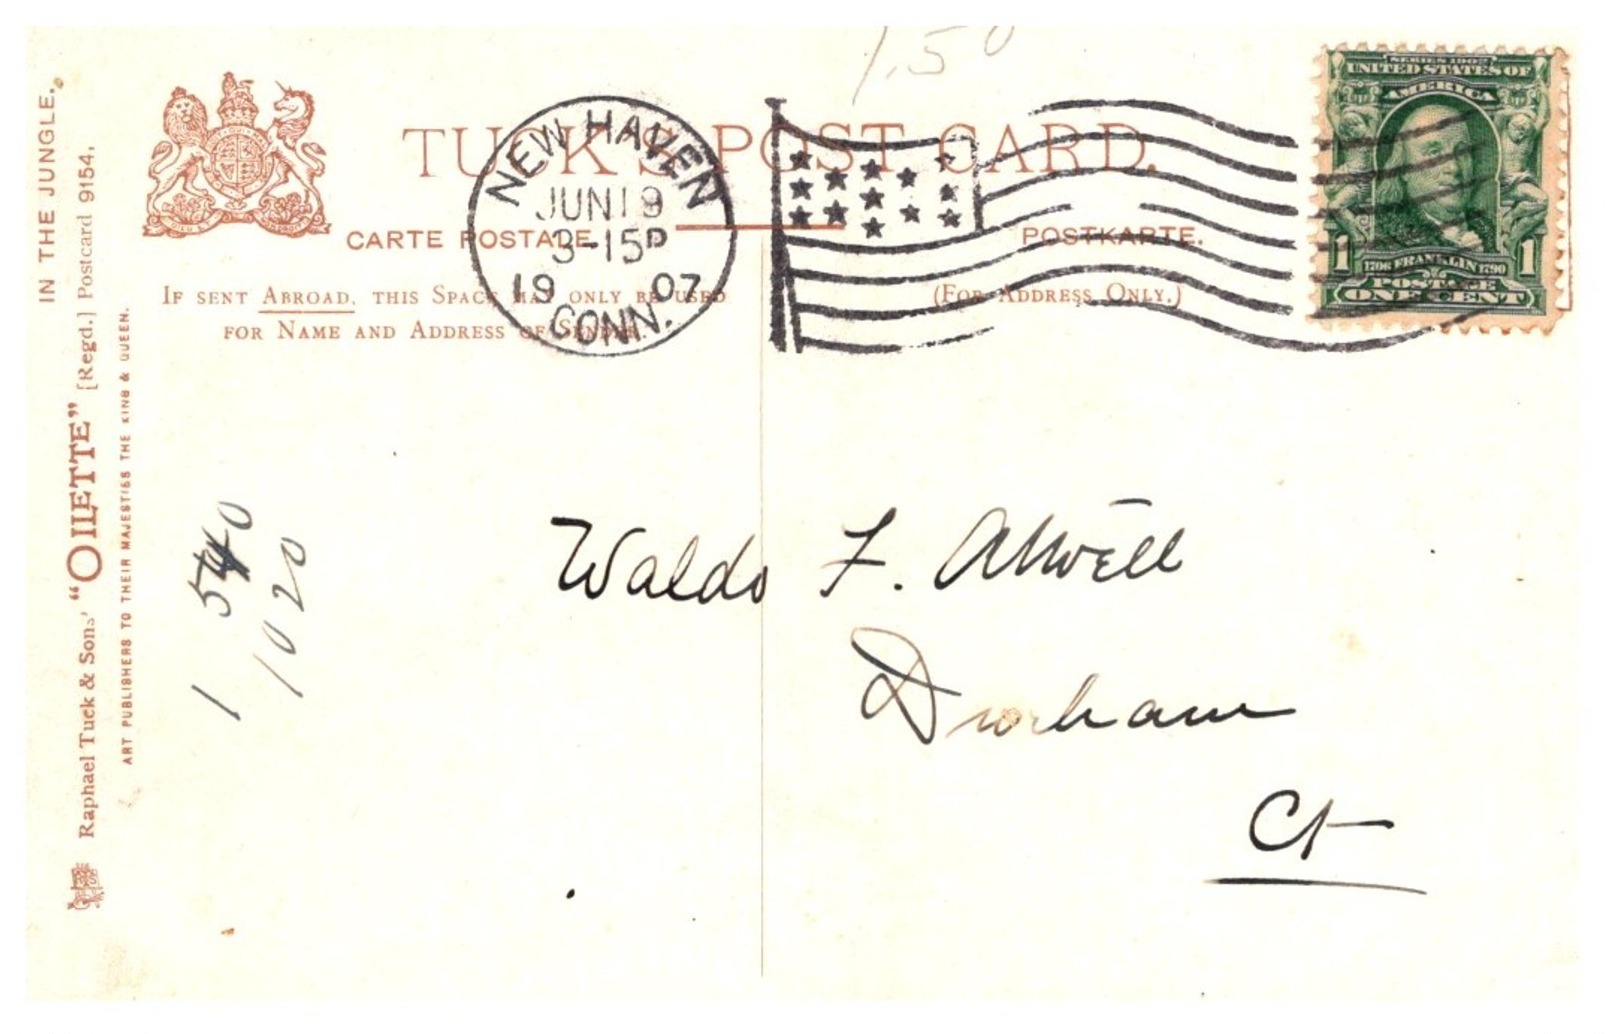 1.50
TUCK'S POST CARD.
CARTE POSTALE.
POSTKARTE.
IF SENT ABROAD, THIS SPACE MAY ONLY BE USED
FOR NAME AND ADDRESS OF SENDER.
(FOR ADDRESS ONLY.)
NEW HAVEN
JUN 19
3-15P
1907
CONN.
SERIES 1902
UNITED STATES OF
AMERICA
1 1
1706 FRANKLIN 1790
POSTAGE
ONE CENT
IN THE JUNGLE.
Raphael Tuck & Sons' "OILETTE" [Regd.] Postcard 9154.
ART PUBLISHERS TO THEIR MAJESTIES THE KING & QUEEN.
1 540
1020
Waldo F. Atwell
Durham
Ct